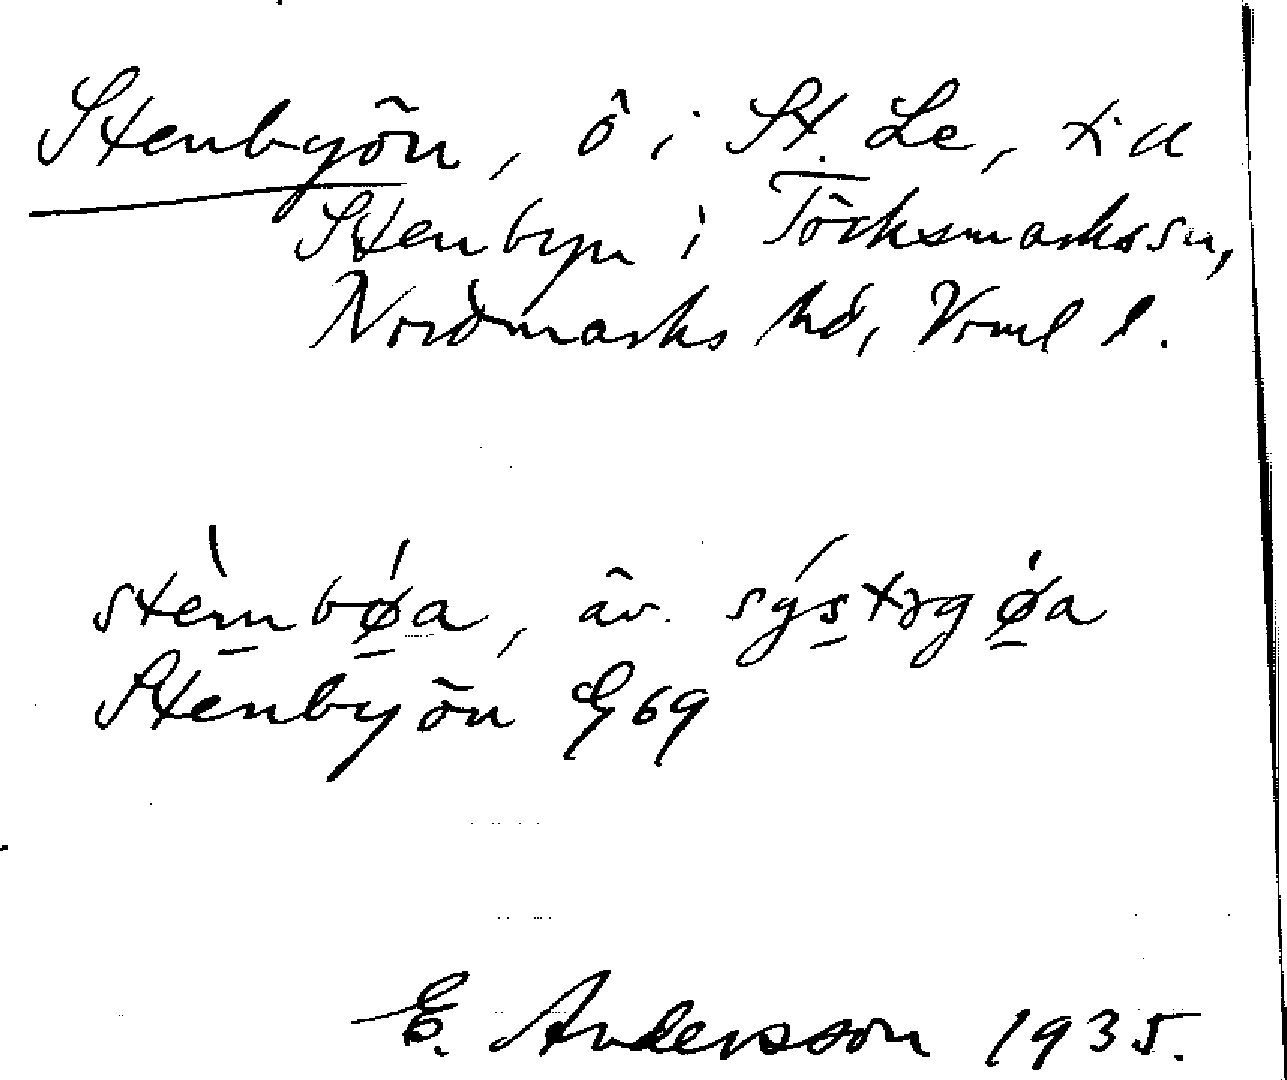 Stenbyön, ö i St. Le, till
Stenbyn i Töcksmarks sn,
Nordmarks hd, Verml l.
stèmbǿa, äv. sýstrgǿa
Stenbyön G69
E. Andersson 1935.